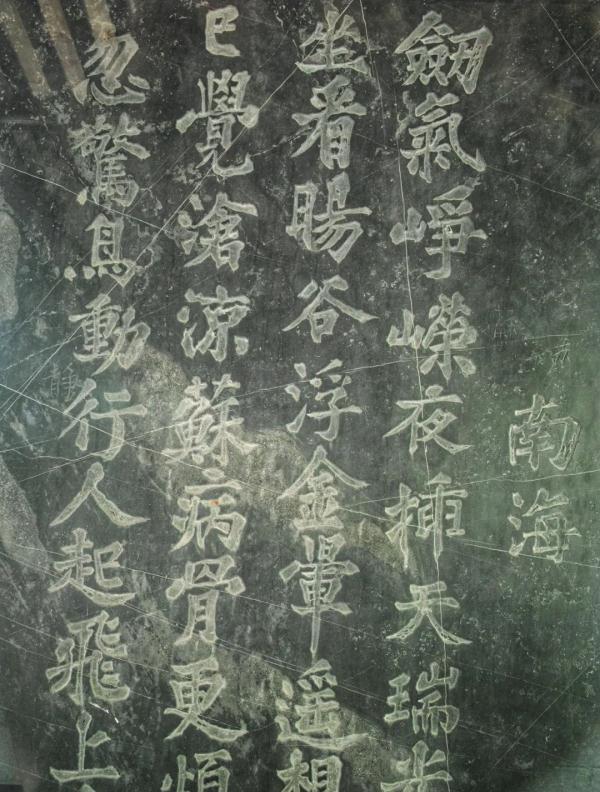 南海
劒氣崢嶸夜揷天瑞光
坐看暘谷浮金暈遥想
已覺滄涼蘇病骨更煩
忽驚鳥動行人起飛上